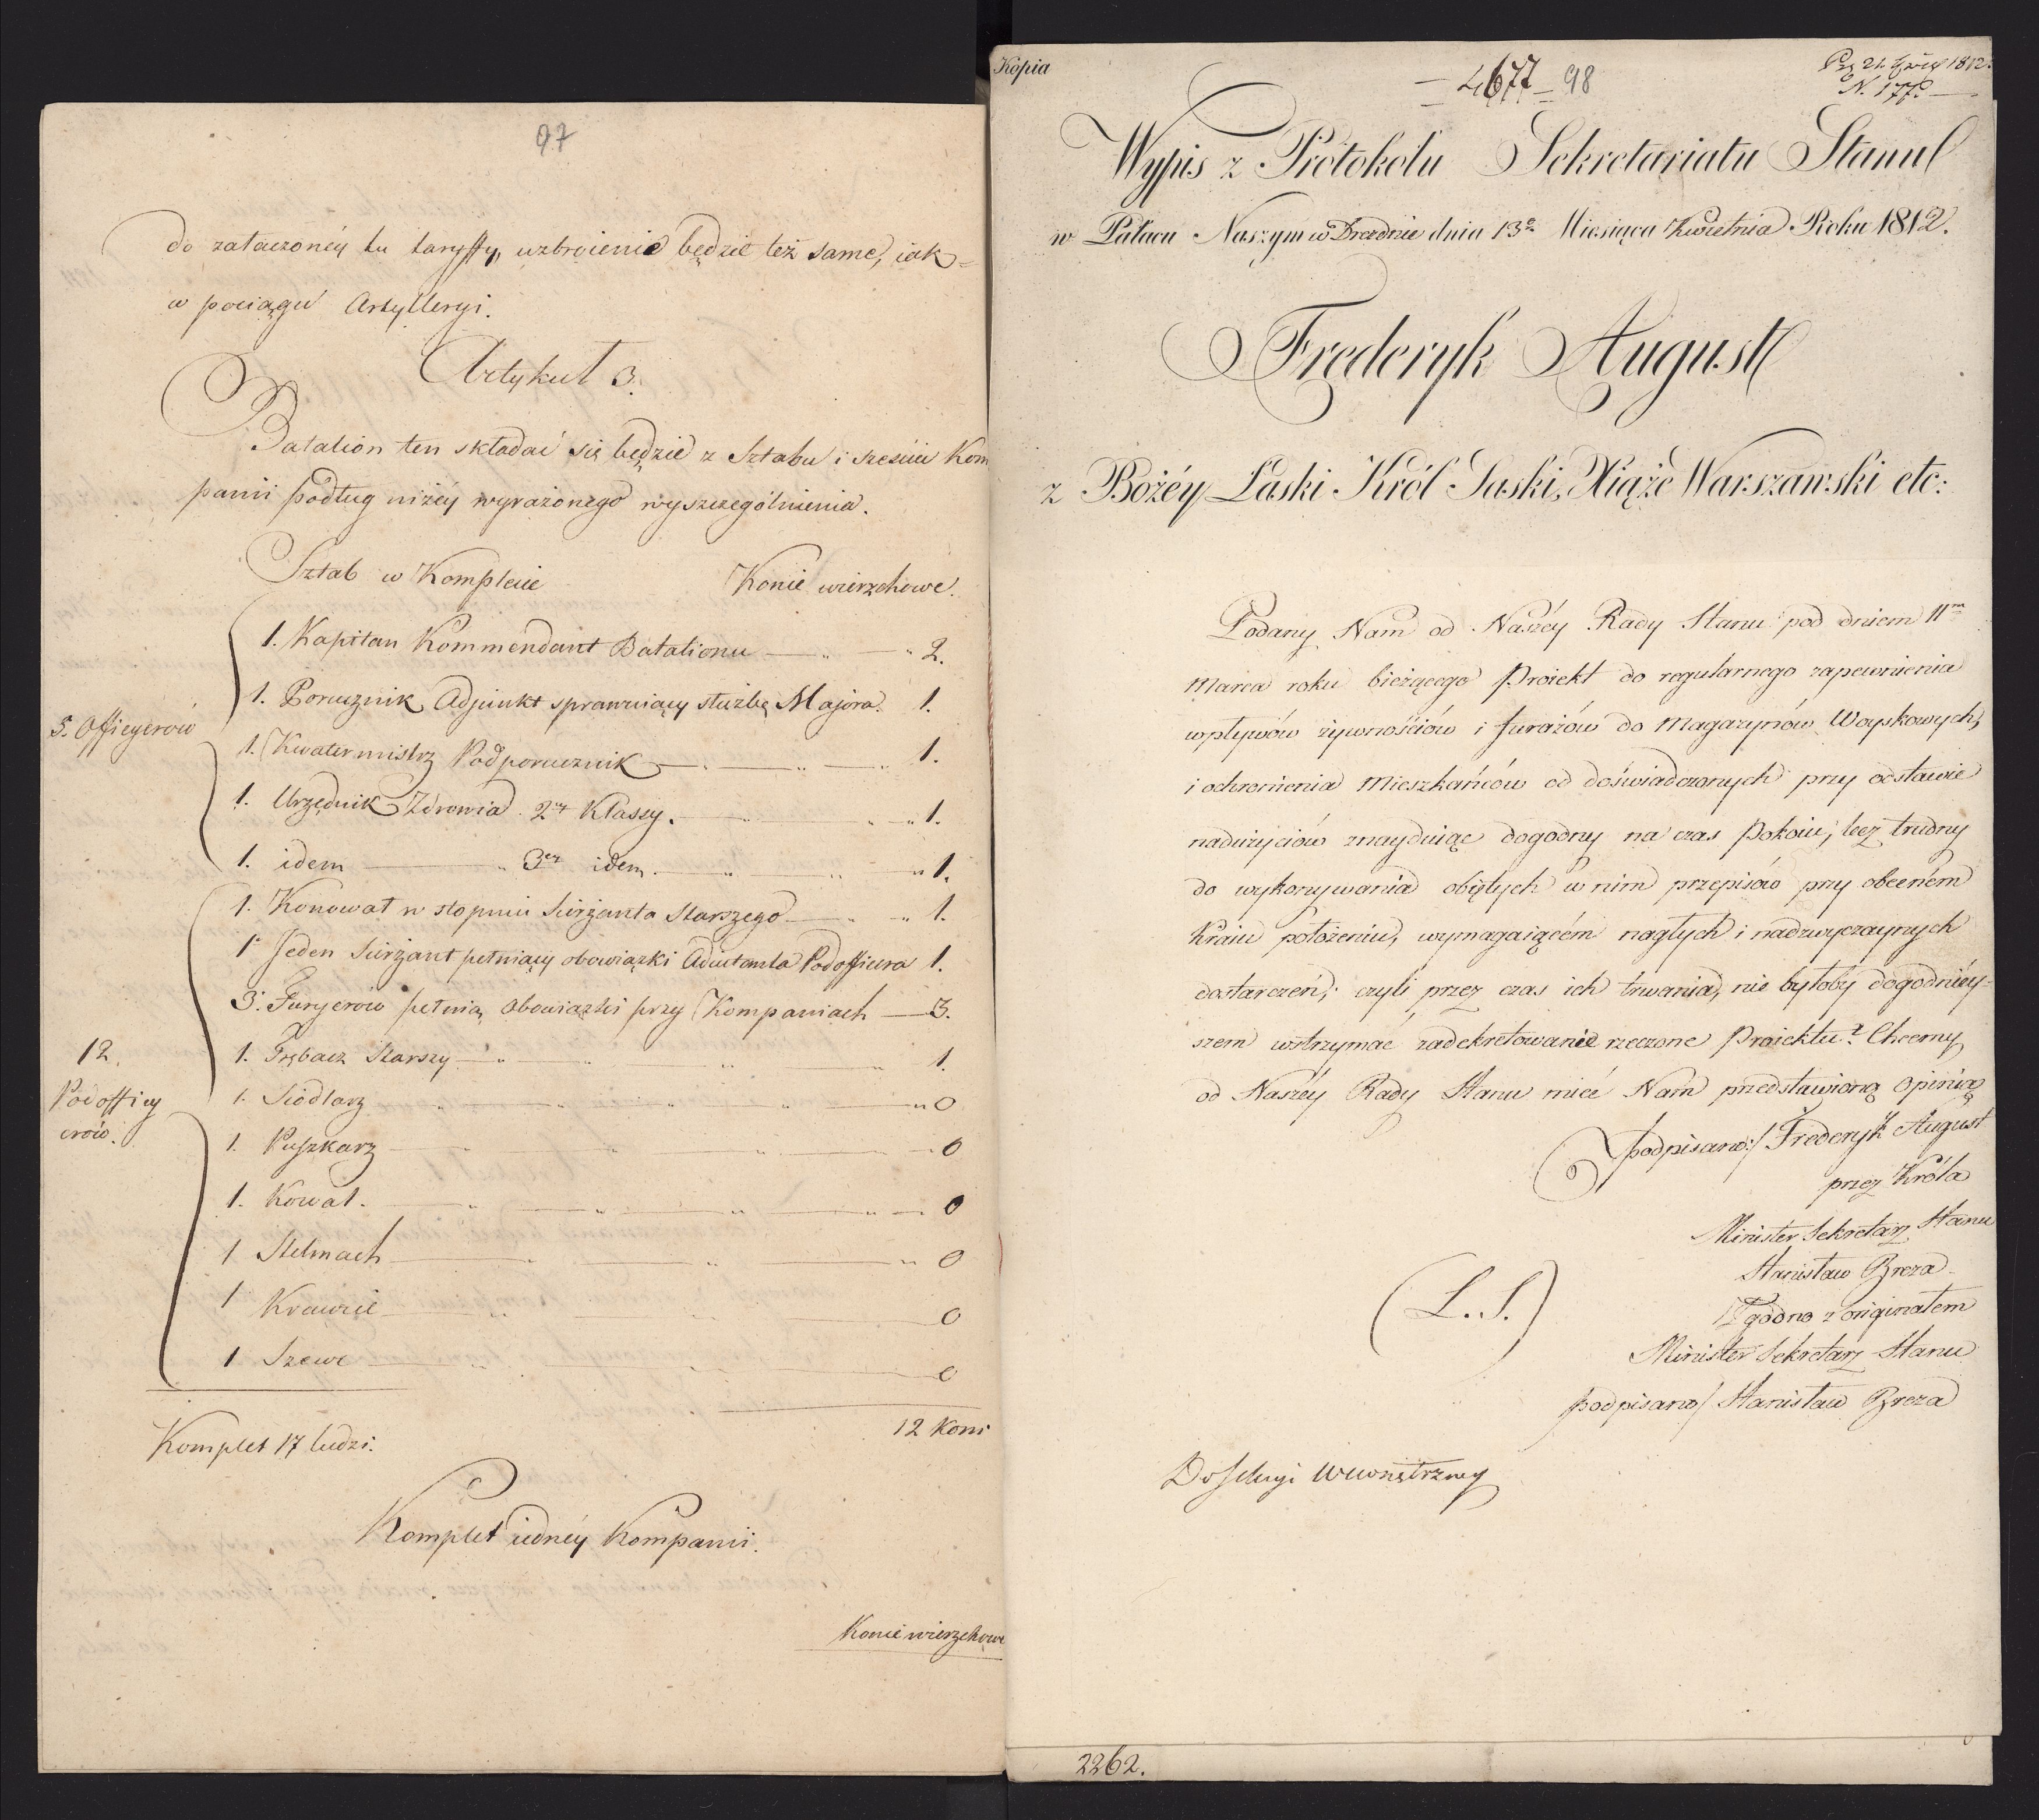 97
do załączonéy tu taryffy, uzbroienie będzie też same, iak
w pociągu Artylleryi.
Artykuł 3.
Batalion ten składać się będzie z Sztabu i sześciu Kom
panii podług niżéy wyrażonego wyszczególnienia.
Sztab w Komplecie Konie wierzchowe.
1. Kapitan Kommendant Batalionu 2.
1. Porucznik Adjunkt sprawuiący służbę Majora. 1.
5. Officyerów
1. Kwatermistrz Podporucznik 1.
1. Urzędnik Zdrowia 2ey Klassy. 1.
1. idem 3ey idem. 1.
1. Konował w stopniu Sierżanta Starszego 1.
1 Jeden Sierżant pełniący obowiązki Adiutanta Podofficera 1.
3. Furyerów pełnią obowiązki przy Kompaniach 3.
12.
1. Trębacz Starszy 1.
Podofficy
erów.
1. Siodlarz 0
1. Puszkarz 0
1. Kowal. 0
1 Stelmach 0
1 Krawiec 0
1 Szewc 0
Komplet 17 ludzi. 12 Koni
Komplet iednéy Kompanii.
Konie wierzchowe
Kopia
4677 98
21. 1812.
N. 177.
Wypis z Protokołu Sekretariatu Stanu
w Pałacu Naszym w Dreźnie dnia 13o Miesiąca Kwietnia Roku 1812.
Frederyk August
z Bożéy Łaski Król Saski, Xiąże Warszawski etc:
Podany Nam od Naszéy Rady Stanu pod dniem 11m
Marca roku bieżącego Proiekt do regularnego zapewnienia
wpływów żywnościów i furażów do Magazynów Woyskowych,
i ochronienia Mieszkańców od doświadczonych przy odstawie
nadużyciów znayduiąc dogodny na czas Pokoiu, lecz trudny
do wykonywania obiętych w nim przepisów przy obecném
Kraiu położeniu, wymagaiącém nagłych i nadzwyczaynych
dostarczeń; czyli przez czas ich trwania, nie byłoby dogodniéy-
szem wstrzymać zadekretowanie rzeczone Proiektu? Chcemy
od Naszéy Rady Stanu mieć Nam przedstawioną opinią
podpisano:/ Frederyk August
przez Króla
Minister Sekretarz Stanu
Stanisław Breza
(L.S.)
Zgodno z originałem
Minister Sekretarz Stanu
podpisano/ Stanisław Breza
Do Sekcyi Wewnętrzney
2262.